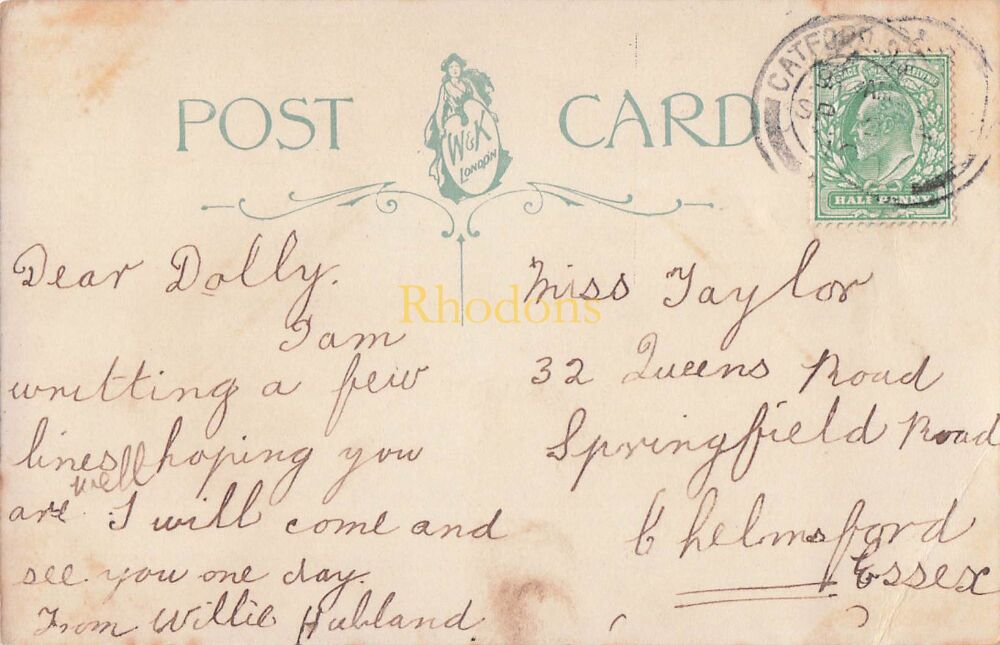 POST CARD
W&K
LONDON
CATFORD
HALF PENNY
Dear Dolly.
I am
writting a few
lines hoping you
are well I will come and
see you one day.
From Willie Hubland
Miss Taylor
32 Queens Road
Springfield Road
Chelmsford
Essex
Rhodons